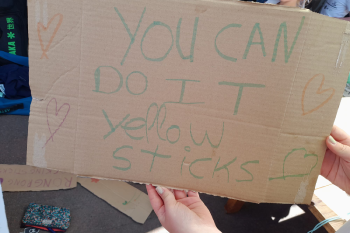 YOU CAN
DO IT
yellow
sticks